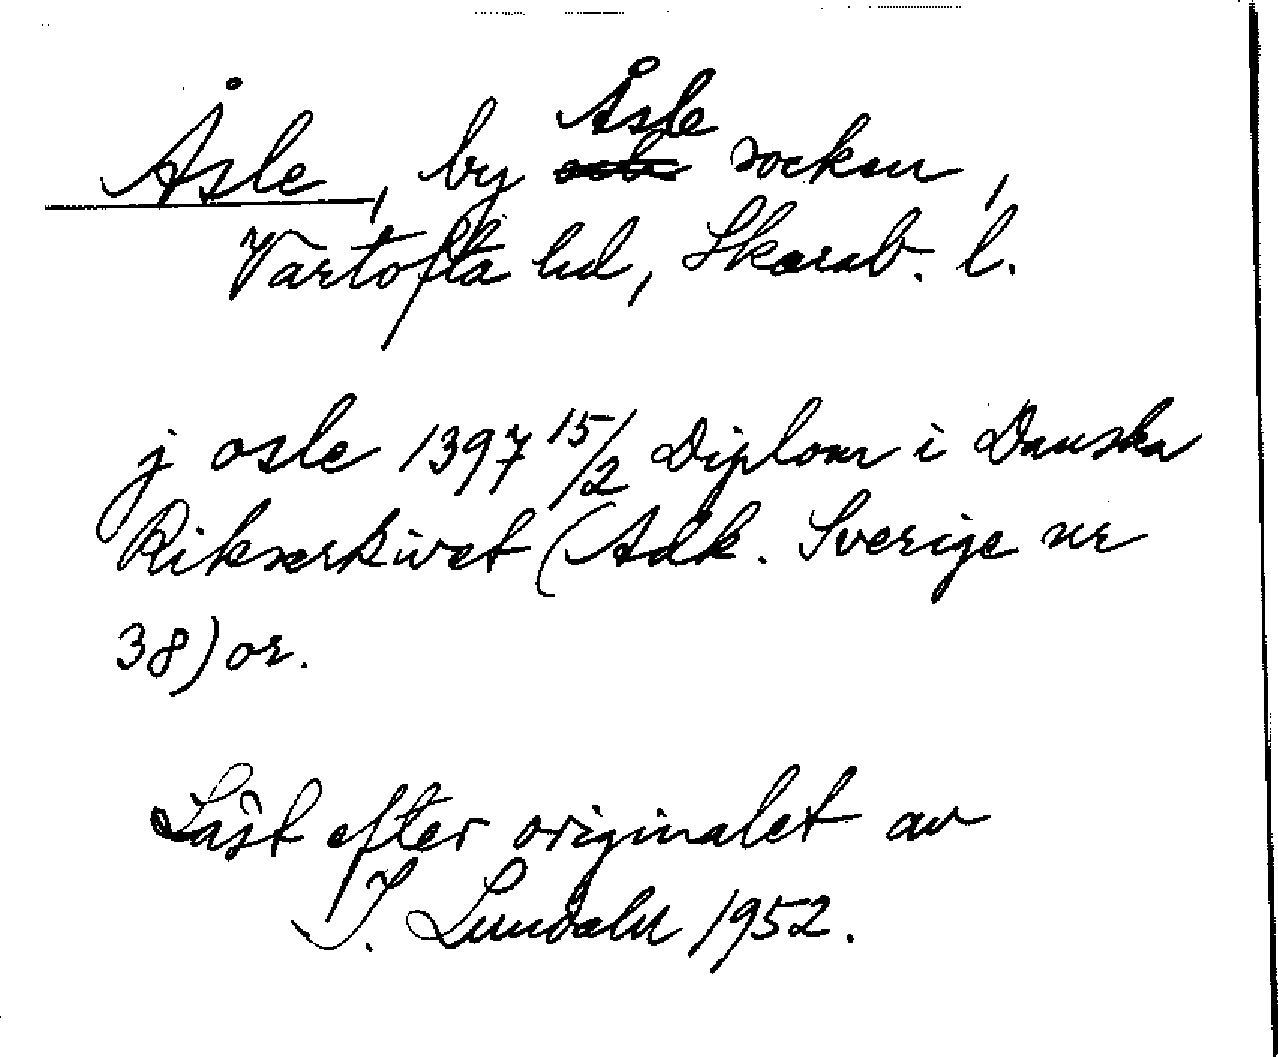 Åsle, by Åsle socken,
Vartofta hd, Skarab. l.
j osle 1397 15/2 Diplom i Danska
Riksarkivet (Adk. Sverige nr
38) or.
Läst efter originalet av
I. Lundahl 1952.